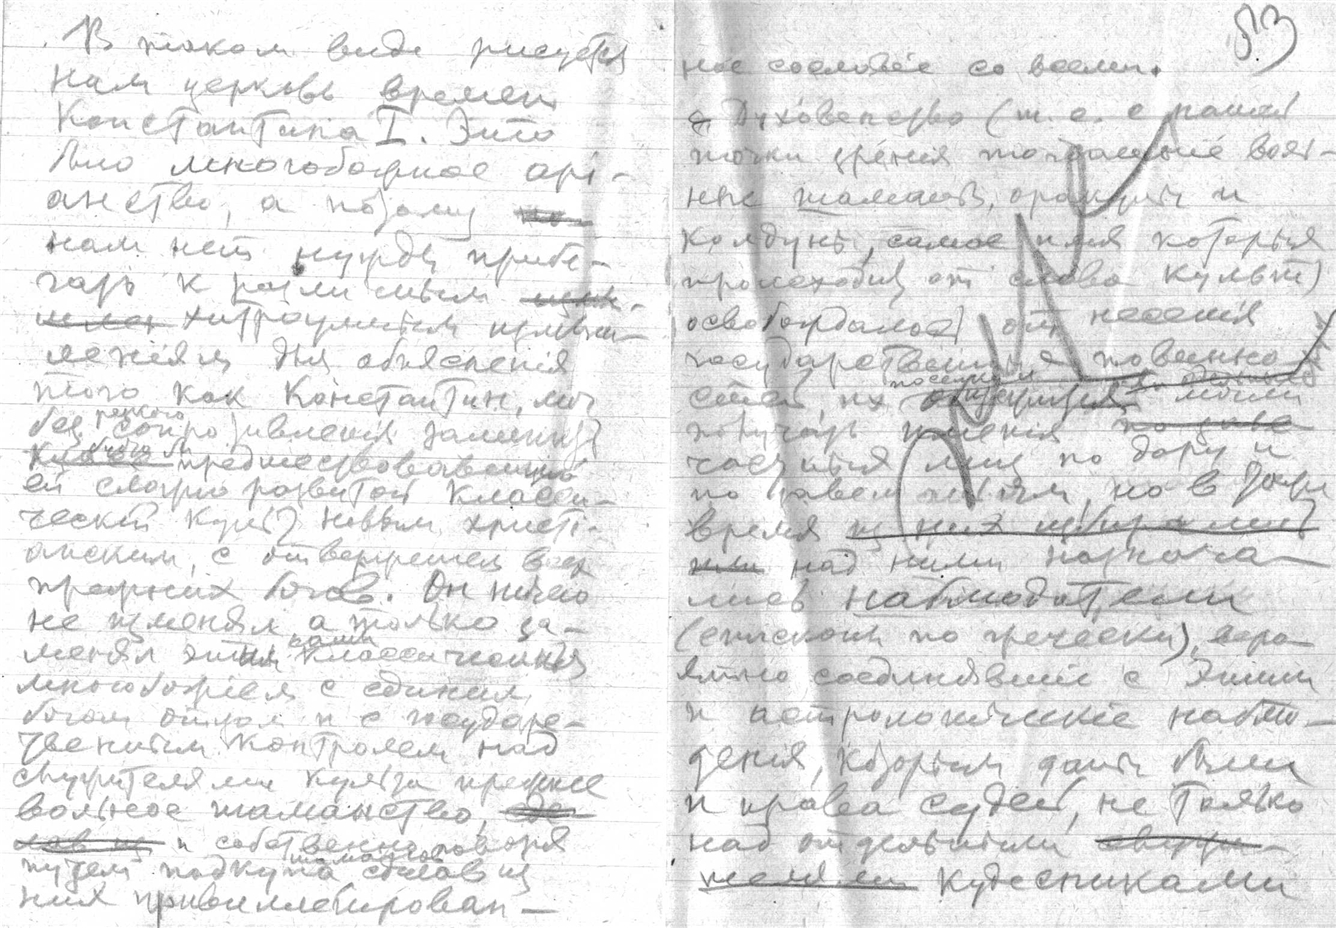 В таком виде рисуется
нам церковь времен
Константина I. Это
было многобожное арі-
анство, а потому
нам нет нужды прибе-
гать к различным
хитроумным измыш-
леніям для объясненія
того как Константин, мог
без резкого сопротивленія заменить
предшествовавший
ей сложно развитой класси-
ческій культ новым христі-
анским, с отвержением всех
прежних богов. Он ничего
не изменял а только за-
менял этим классическим
многобожіем с единым
богом отцом и с государс-
твенным контролем над
служителями культа прежнее
вольное шаманство,
и собственно говоря
путем подкупа шаманов сделав из
них привиллегирован-
513
ное сословіе со всеми.
Духовенство (т. е. с нашей
точки зрѣнія тогдашніе
шаманы, оракулы и
колдуны, самое имя которыя
происходит от слова культ)
освобождалось от несенія
государственных повинно-
стей, их
получать именія
частныя лиц по дару и
по завещаніям, но в то же
время из них избирались
над ними назнача-
лись наблюдатели
(епископы по гречески), веро-
ятно соединявшіе с этим
и астрологическіе наблю-
денія, которым даны были
и права судей, не только
над отдельными
кудесниками